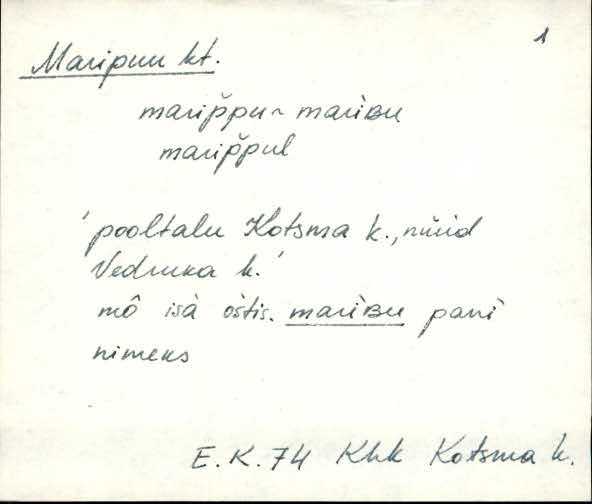 1
Maripuu kt.
marip̆pu ~ mariʙu
marip̆pul
'pooltalu Kotsma k., nüüd
Vedruka k.'
mô isà òštis. mariʙu pani
nimeks
E.K. 74 Khk Kotsma k.